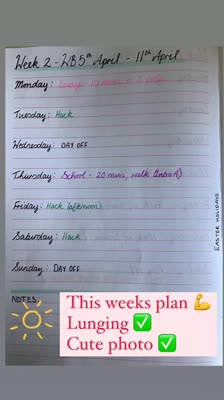 Week 2 - WB 5th April - 11th April
Monday: Lunge 10 mins + 3 poles
Tuesday: Hack
Wednesday: DAY OFF
Thursday: School - 20 mins, walk (Intro A)
Friday: Hack (afternoon)
Saturday: Hack
Sunday: DAY OFF
EASTER HOLIDAYS
NOTES:
This weeks plan 💪
Lunging ✅
Cute photo ✅